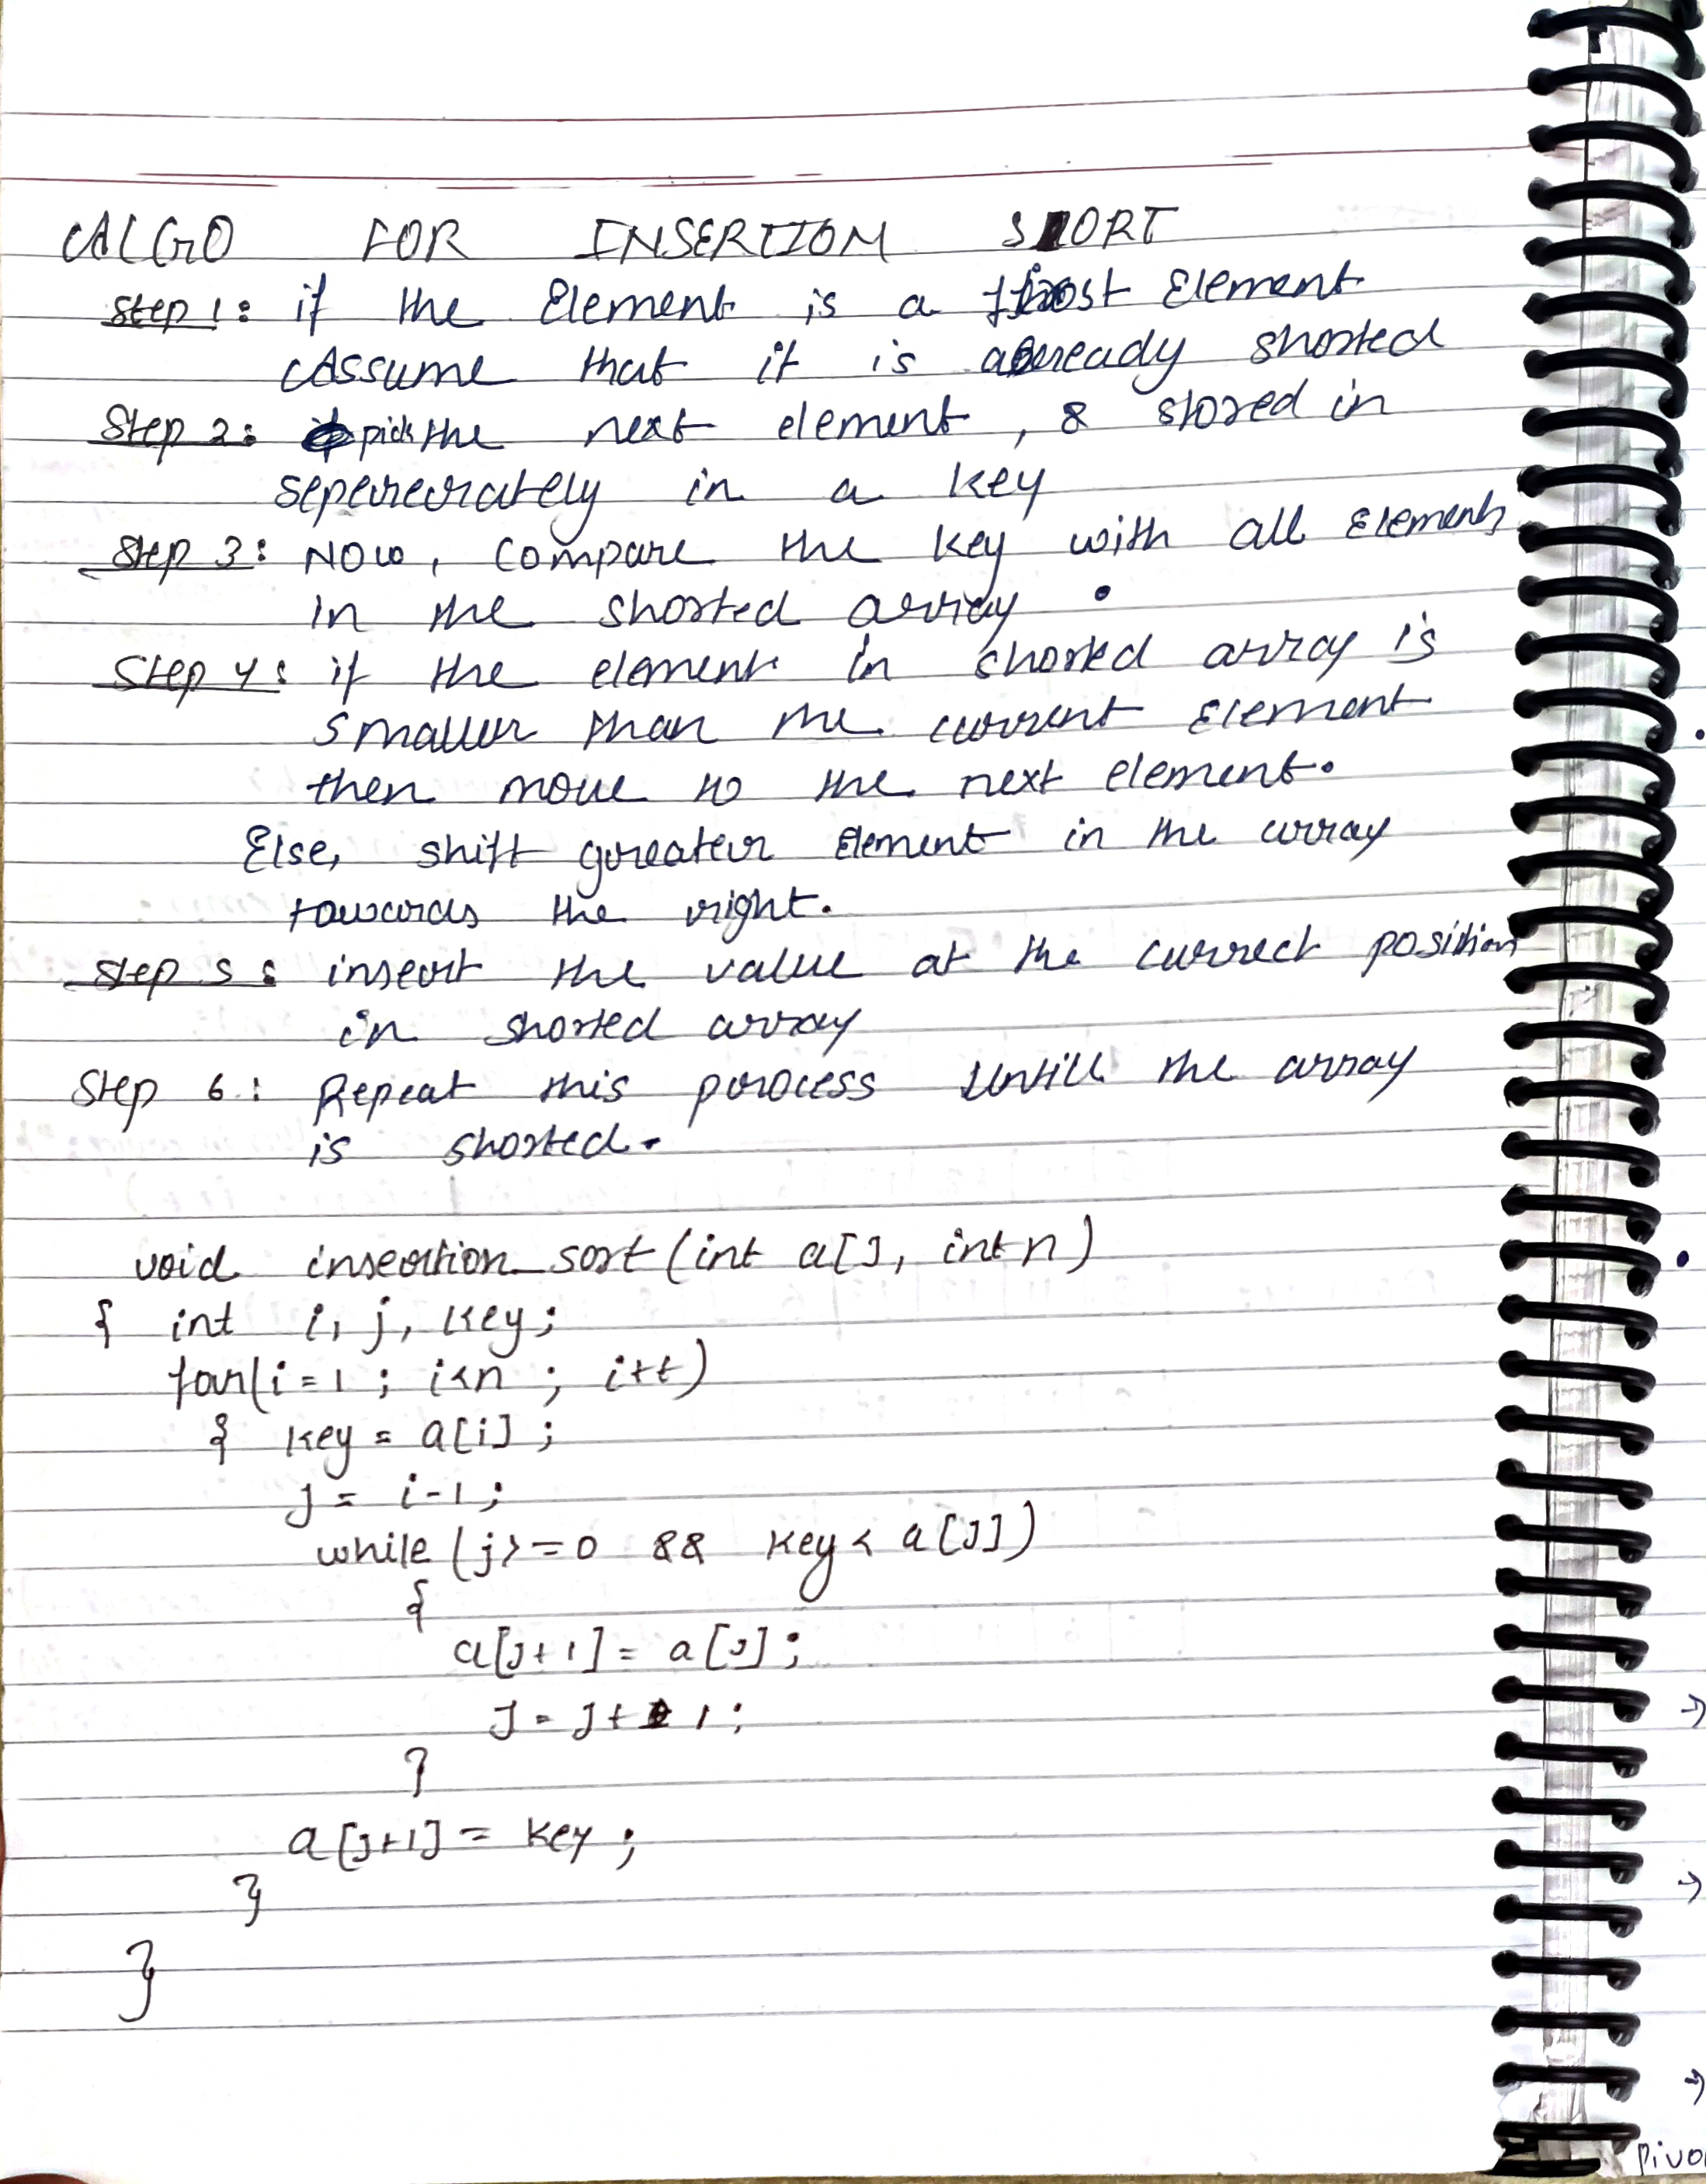 ALGO FOR INSERTION SORT
Step 1: if the Element is a first Element
Assume that it is already shorted
Step 2: pick the next element, & stored in
seperately in a key
Step 3: Now, compare the key with all Elements
in the shorted array.
Step 4: if the element in shorted array is
smaller than the current Element
then move to the next element.
Else, shift greater Element in the array
towards the right.
Step 5: insert the value at the currect position
in shorted array
Step 6: Repeat this process untill the array
is shorted.
void insertion_sort(int a[], int n)
{ int i, j, key;
for(i=1; i<n; i++)
{ key = a[i];
j = i-1;
while (j>=0 && key < a[j])
{
a[j+1] = a[j];
j = j+1;
}
a[j+1] = key;
}
}
Pivo